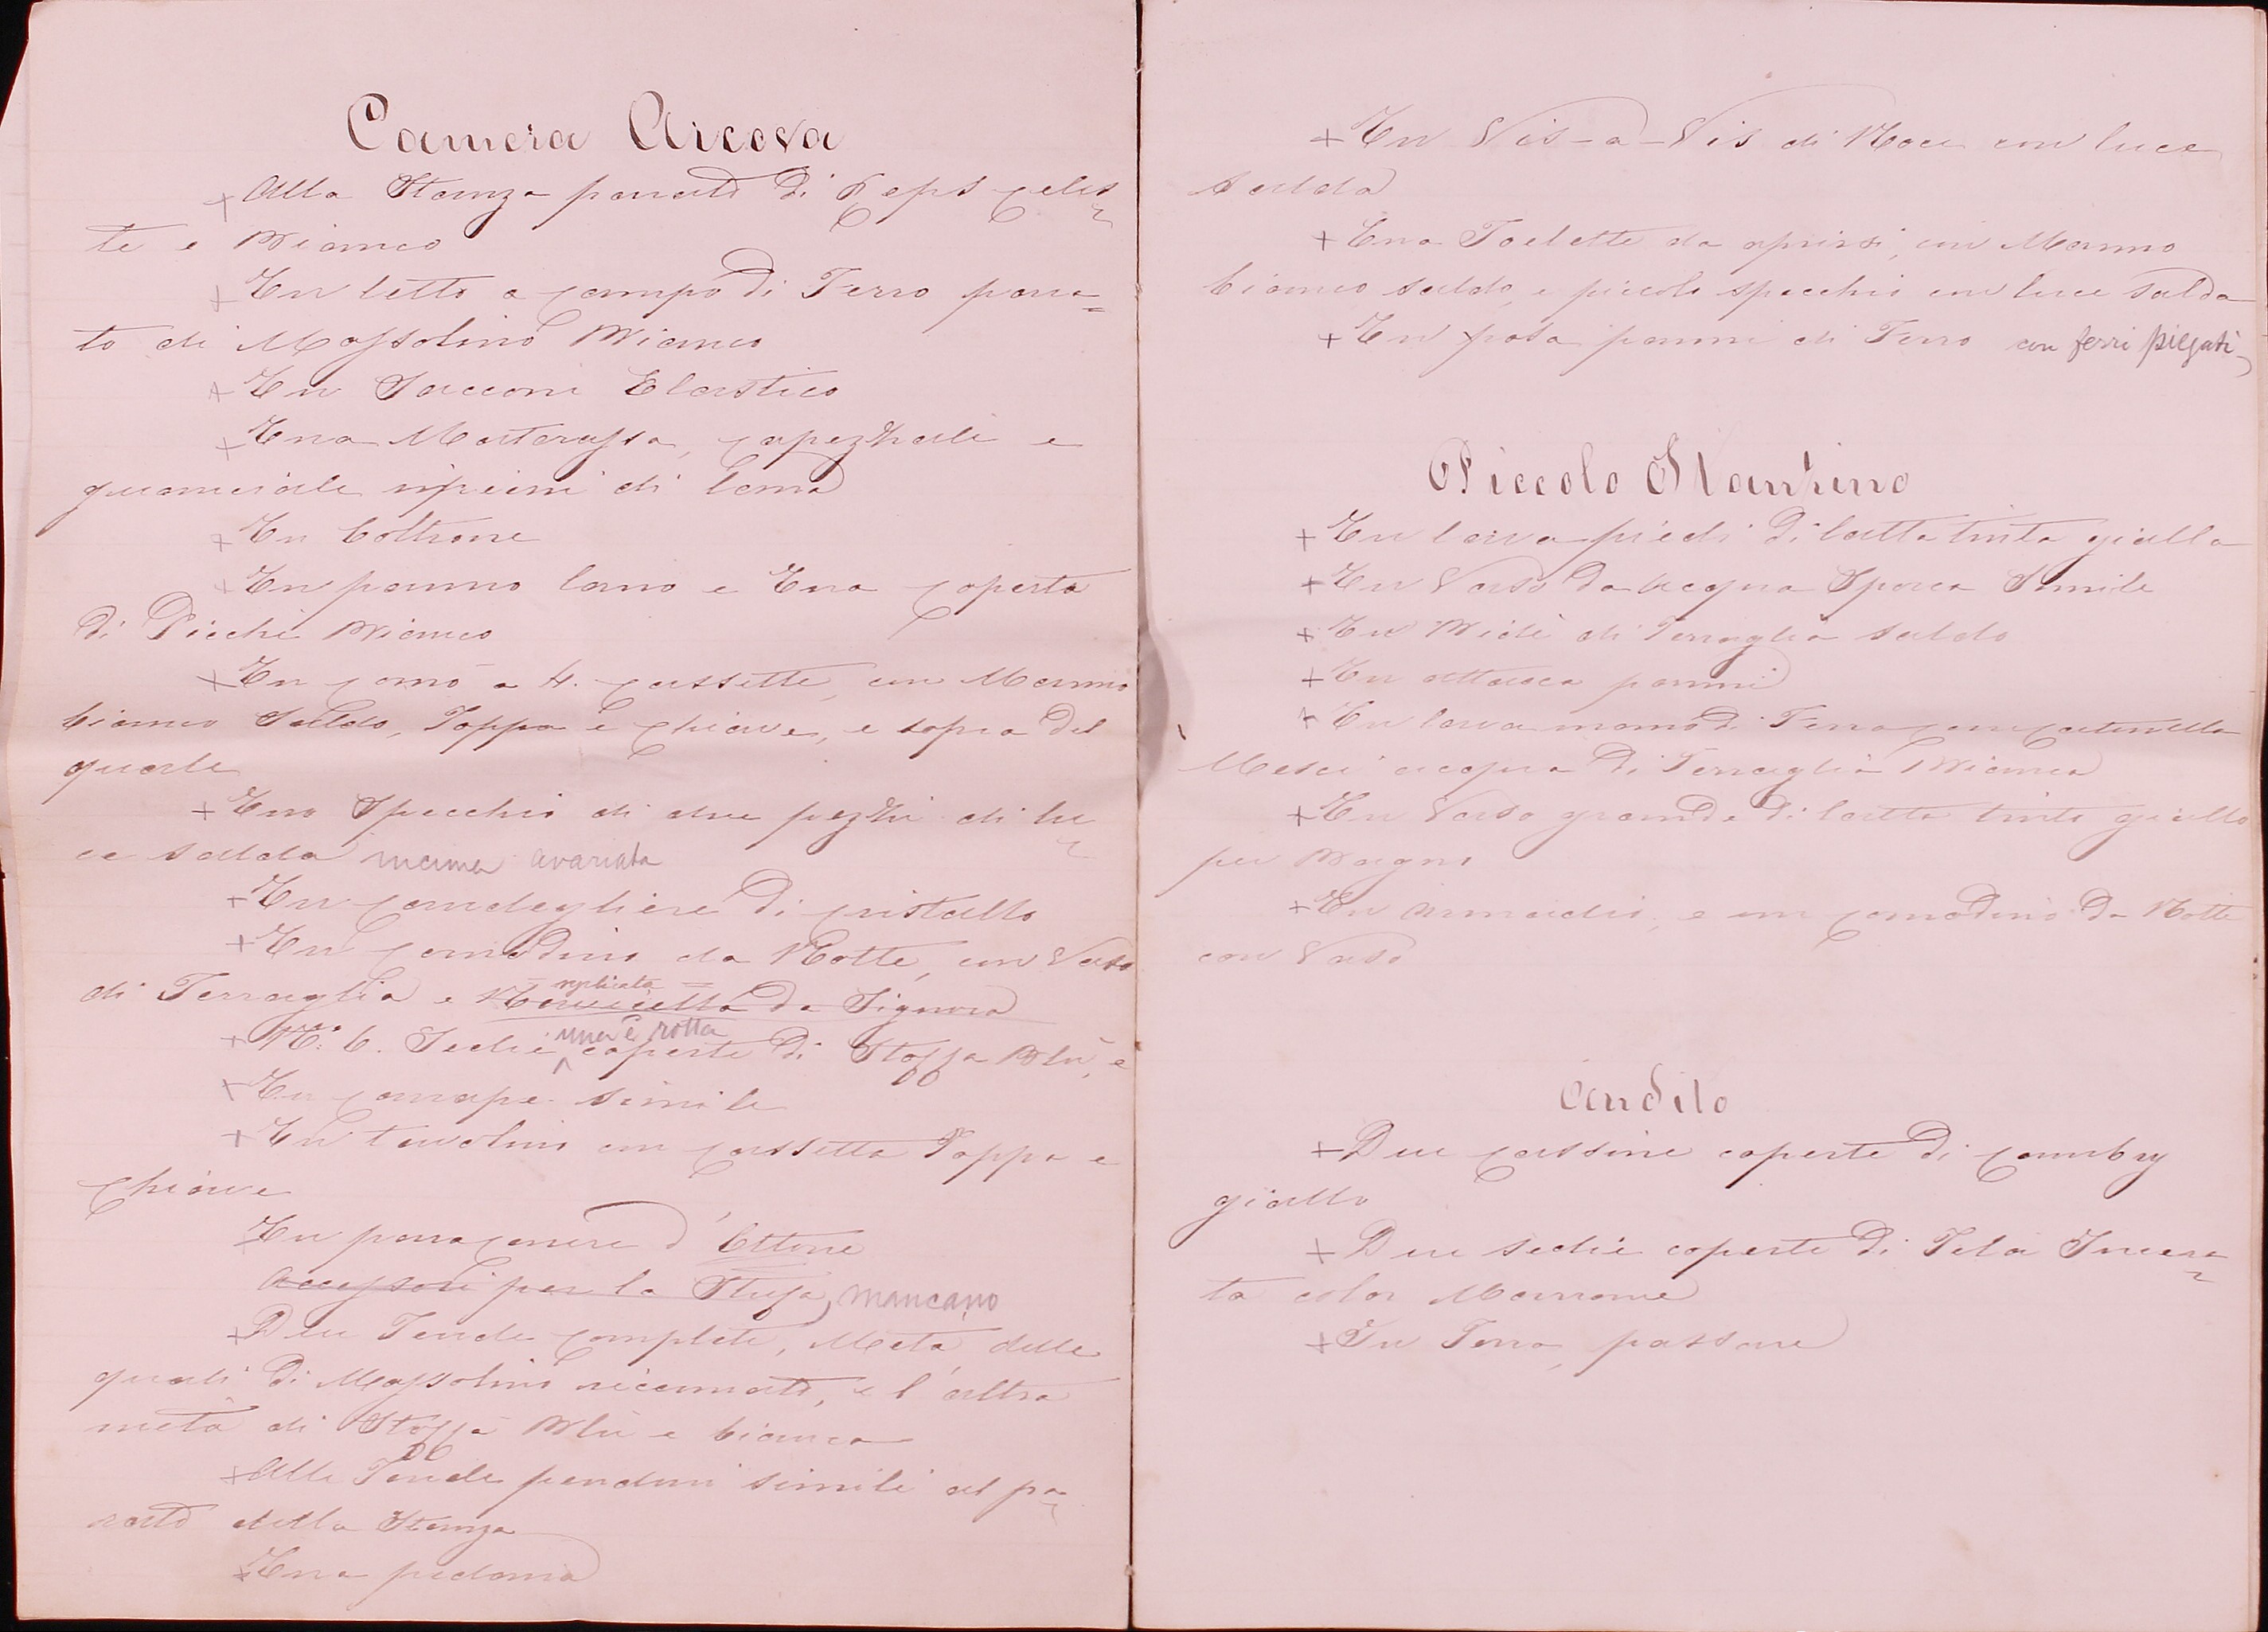 Camera Arcova
+ Alla Stanza parato di Reps celes=
te e Bianco
+ Un letto a campo di Ferro para=
to di Mossolino Bianco
+ Un Saccone Elastico
+ Una Materassa, capezzale e
guanciale ripieni di lana
+ Un Coltrone
+ Un panno lano e Una coperta
di Picchè Bianco
+ Un comò a 4. cassette, con Marmo
bianco Saldo, Toppa e chiave, e sopra del
quale
+ Uno Specchio di due pezzi di lu=
ce salda avariata
+ Un candegliere di cristallo
+ Un comodino da Notte, con Vaso
di Terraglia e replicata da Signora
+ N:º 6. Sedie una è rotta coperte di Stoffa Blù, e
+ Un canape simile
+ Un tavolino con cassetta Toppa e
chiave
Un paracenere d'Ottone
Accessori per la Stufa, mancano
+ Due Tende complete, Metà delle
quali di Mossolino ricamato, e l'altra
metà di Stoffa Blù e bianca
+ Alle Tende pendoni simili al pa=
rato della Stanza
+ Una pedana
+ Un Vis-a-Vis di Noce con luce
salda
+ Una Toelette da aprirsi, con Marmo
bianco saldo, e piccolo specchio con luce salda
+ Un posa panni di Ferro con ferri piegati
Piccolo Stanzino
+ Un lava piedi di latta tinta gialla
+ Un Vaso da Acqua Sporca Simile
+ Un Bidè di Terraglia saldo
+ Un attacca panni
+ Un lava mano di Ferro con catinella
Mesci acqua di Terraglia Bianca
+ Un Vaso grande di latta tinto giallo
per Bagno
+ Un Armadio, e un comodino da Notte
con Vaso
Andito
+ Due cassine coperte di cambry
giallo
+ Due sedie coperte di Tela Incera=
ta color Marrone
+ In Terra, passare